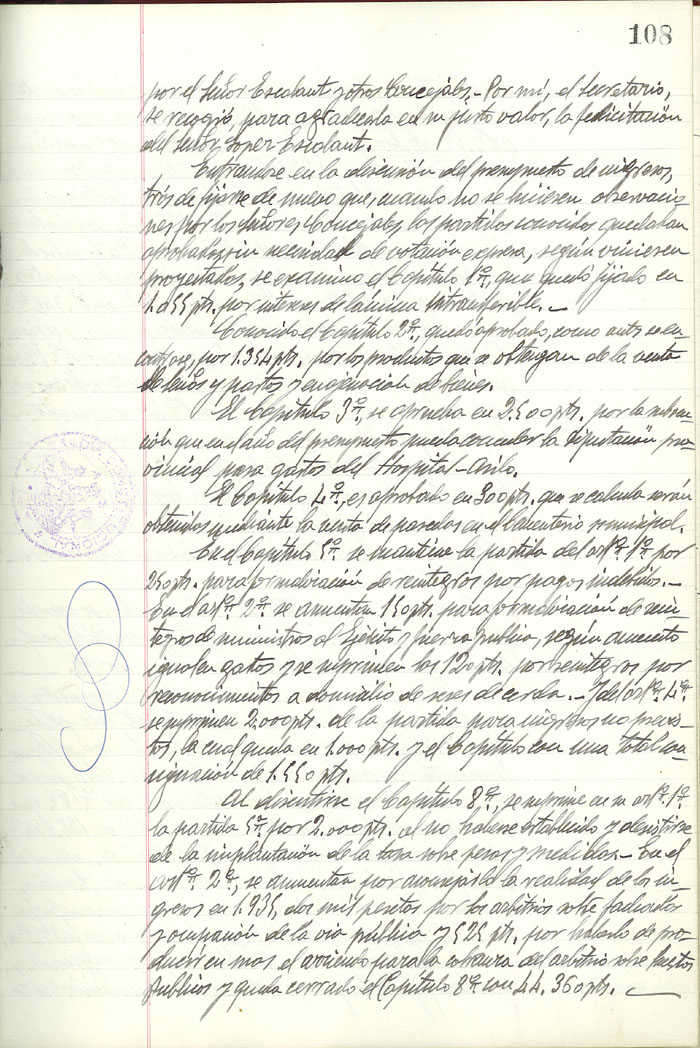 108
por el Señor Escalant y otros Concejales.- Por mí, el Secretario,
se recogió, para agradecerla en su justo valor, la felicitación
del Señor López Escalant.
Entrándose en la discusión del presupuesto de ingresos,
trás de fijarse de nuevo que, cuando no se hiciesen observacio-
nes por los Señores Concejales, las partidas conocidas quedaban
aprobadas sin necesidad de votación expresa, según viniesen
proyectadas, se examino el Capítulo 1º, que quedó fijado en
pts. por intereses de lámina intransferible.-
Conocido el Capítulo 2º, quedó aprobado, como antes
por 1.354 pts. por los productos que se obtengan de la venta
de leñas y pastos y enajenación de bienes.
El Capítulo 3º, se aprueba en 2.500 pts. por la subven-
ción que en el año del presupuesto pueda conceder la Diputación pro-
vincial para gastos del Hospital-Asilo.
El Capítulo 4º, es aprobado en 300 pts. que se calcula serán
obtenidas mediante la venta de parcelas en el Cementerio municipal.
En el Capítulo 5º se mantiene la partida del artº 1º por
250 pts. para formalización de reintegros por pagos indebidos.-
En el artº 2º se aumentan 150 pts. para formalización de rein-
tegros de suministros al Ejército y fuerza pública, según aumento
igual en gastos y se suprimen las 120 pts. por reintegros por
reconocimientos a domicilio de reses de cerda.- Y del artº 4º
se suprimen 2.000 pts. de la partida para ingresos no previs-
tos, la cual queda en 1.000 pts. y el Capítulo con una total con-
signación de 1.550 pts.
Al discutirse el Capítulo 8º, se suprime en su artº 1º
la partida 5ª por 2.000 pts. al no haberse establecido y desistirse
de la implantación de la tasa sobre pesas y medidas.- En el
artº 2º, se aumentan por aconsejarlo la realidad de los in-
gresos en 1.935, dos mil pesetas por los arbitrios sobre fachadas
y ocupación de la vía pública y 525 pts. por haberlo de pro-
ducir en mas el arriendo para la cobranza del arbitrio sobre puestos
públicos y queda cerrado el Capítulo 8º con 44.360 pts.